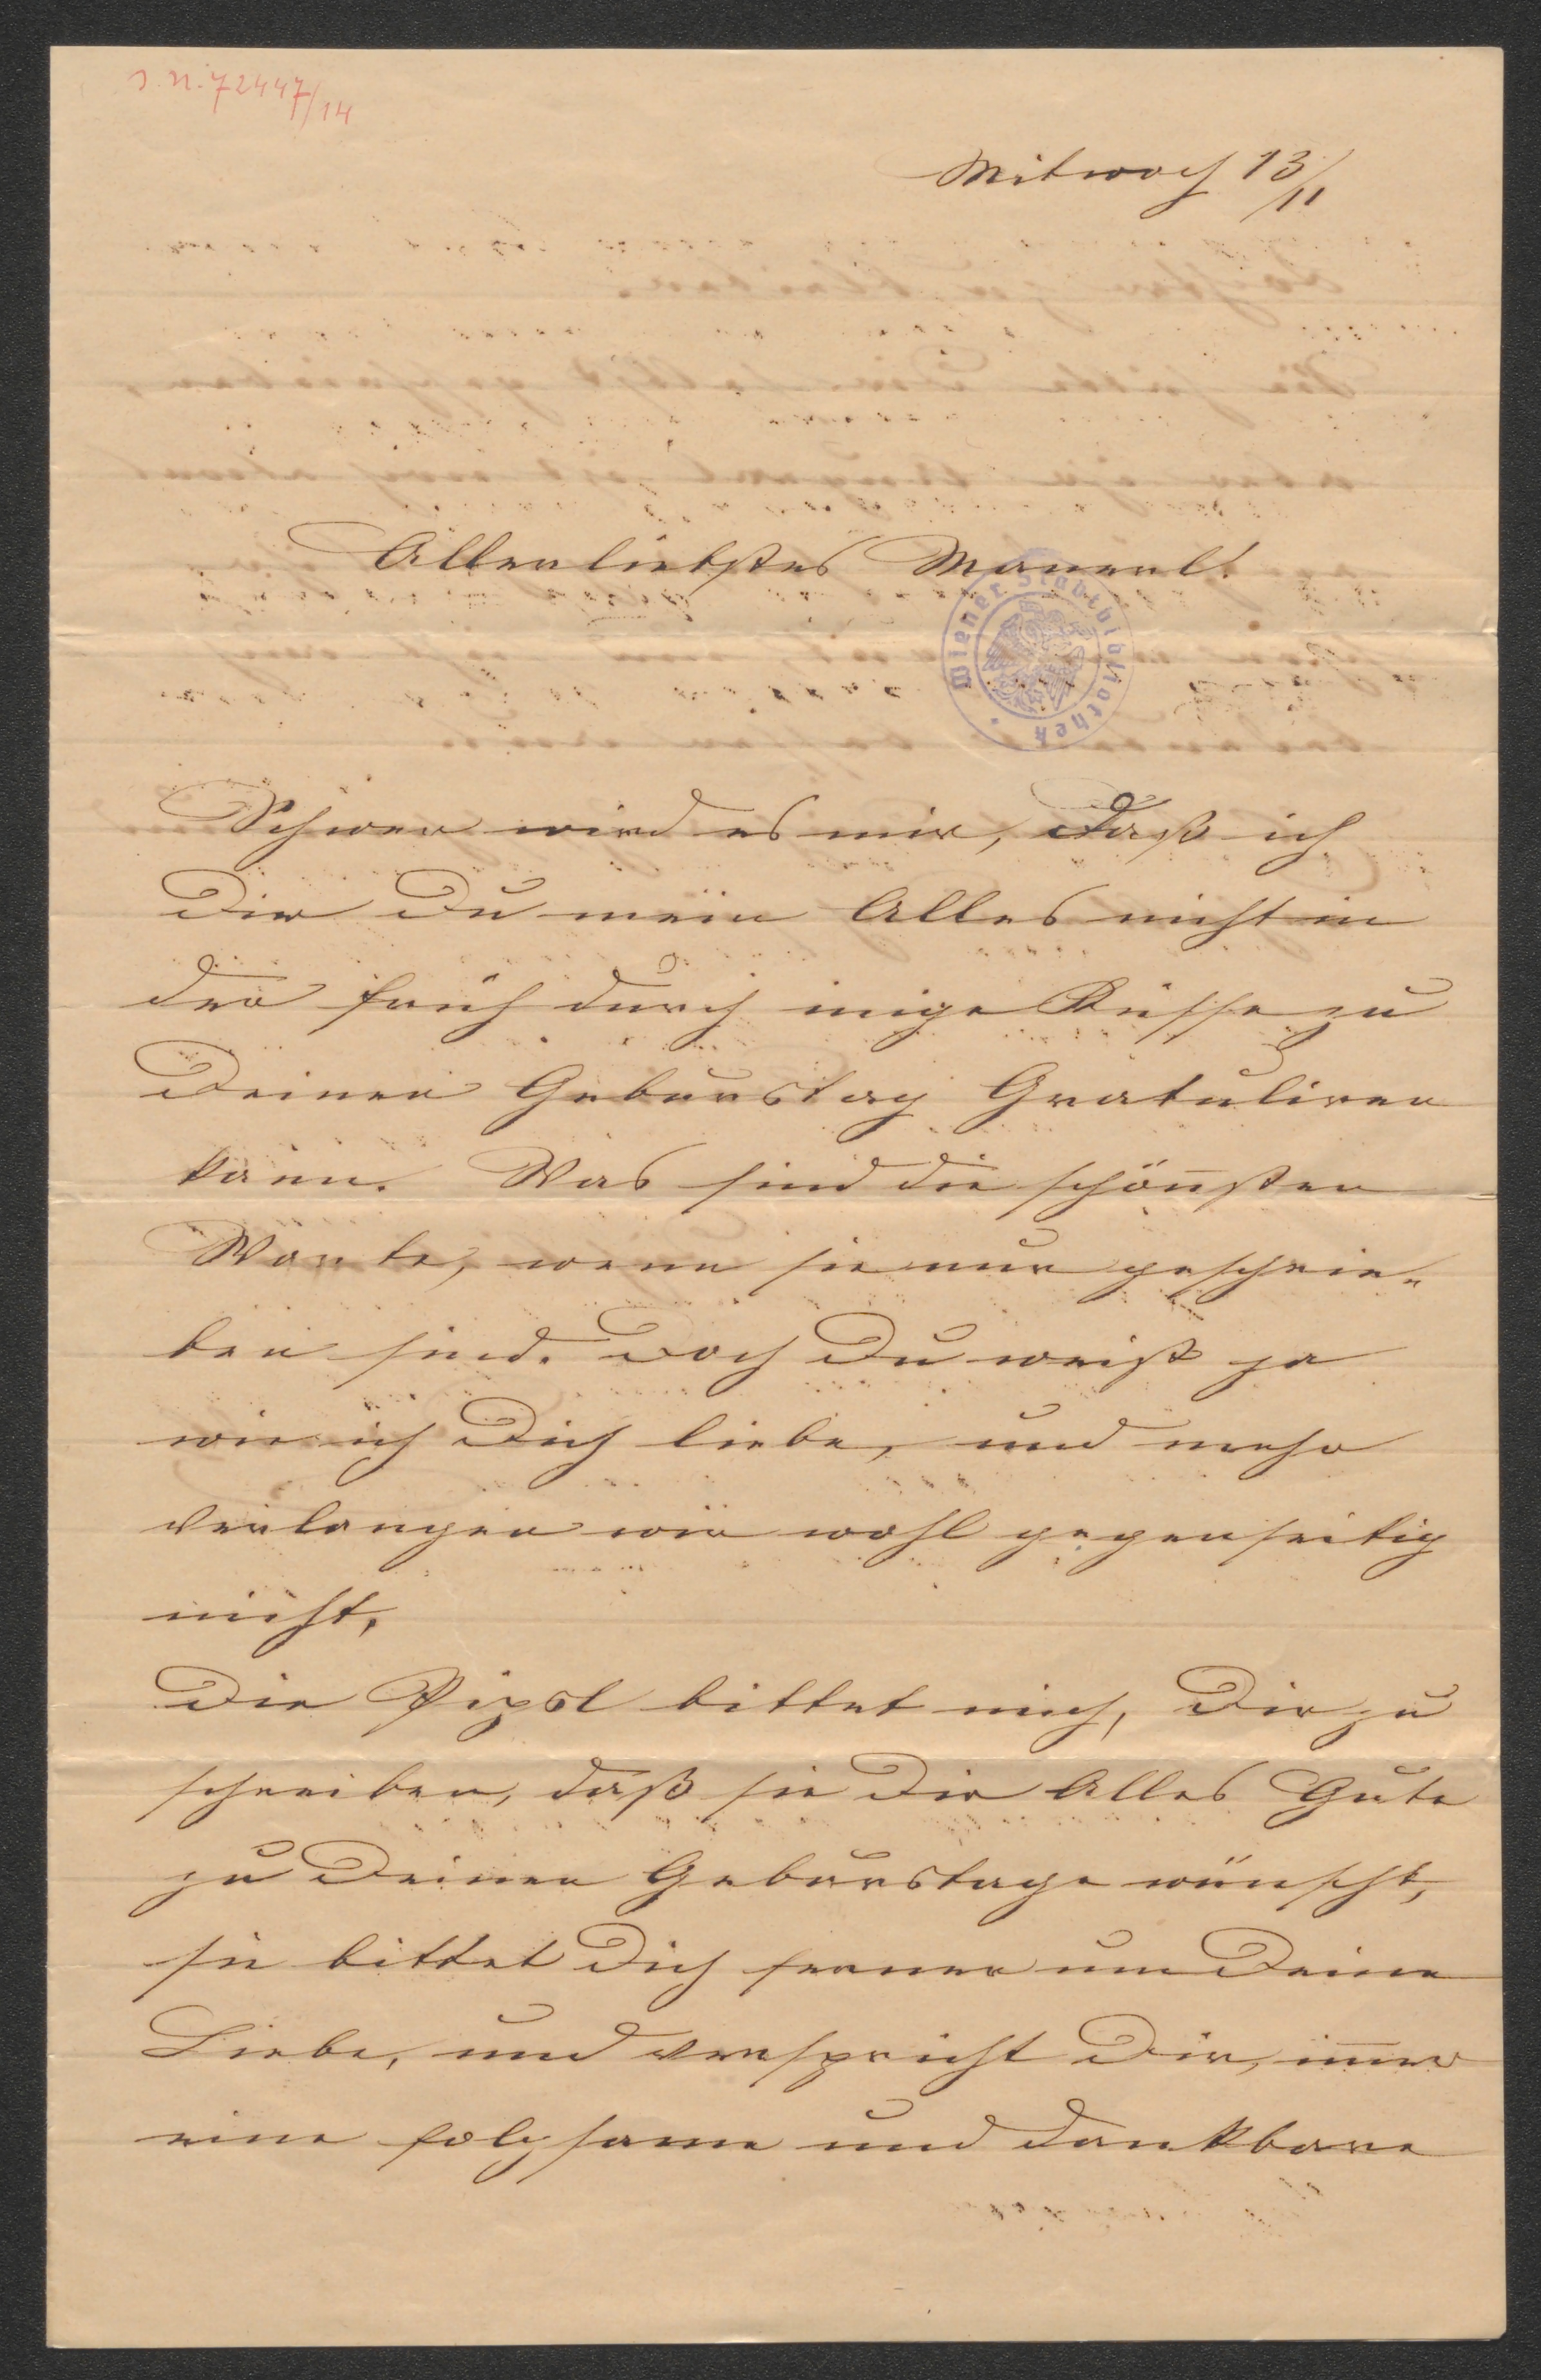 I. N. 72447/14
Mitwoch 13/11
Allerliebstes Mamerl!
Wiener Stadtbibliothek
Schwer wird es mir, daß ich
Dir Du mein Alles nicht in
der früh durch inige Küsse zu
Deinen Geburstag Gratuliren
kann. Was sind die schönsten
Worte, wenn sie nur geschrie-
ben sind. Doch Du weißt ja
wie ich Dich liebe, und mehr
verlangen wir wohl gegenseitig
nicht.
Die Pipsl bittet mich, Dir zu
schreiben, daß sie Dir Alles Gute
zu Deinen Geburstage wünscht,
sie bittet Dich ferner um Deine
Liebe, und verspricht Dir, im̄er
eine folgsame und dankbare